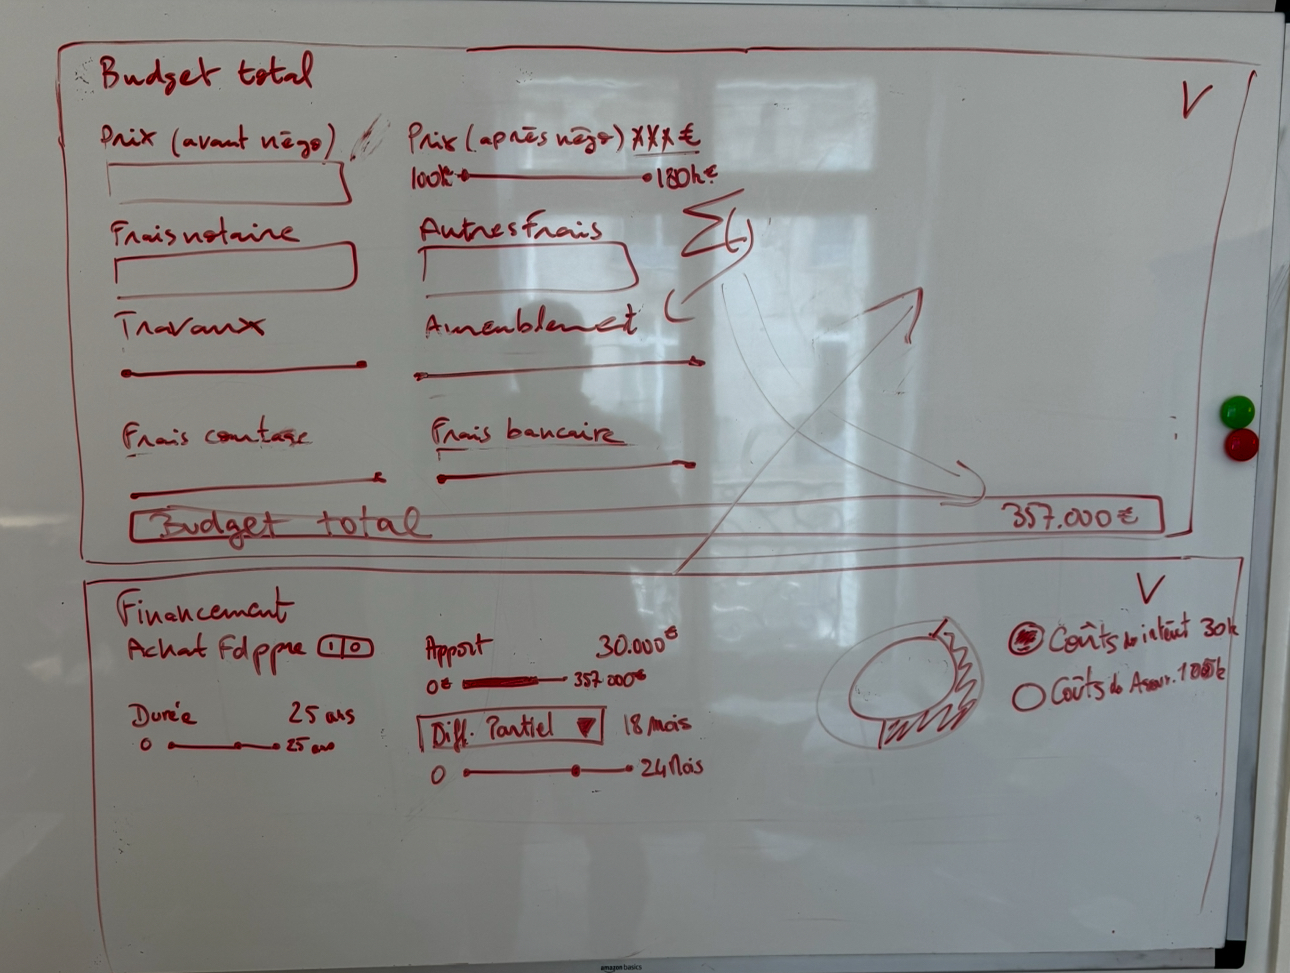 Budget total
V
Prix (avant négo)
Prix (après négo) XXX €
100k€ 180k€
Frais notaire
Autres frais
Σ( )
Travaux
Ameublement
Frais courtage
Frais bancaire
Budget total 357.000€
Financement
V
Achat 1 0
Apport 30.000€
0€ 357 000€
Durée 25 ans
0 25 ans
Diff. Partiel ▼ 18 mois
0 24 Mois
Coûts de intérêt 30k
Coûts de Assur.
amazon basics